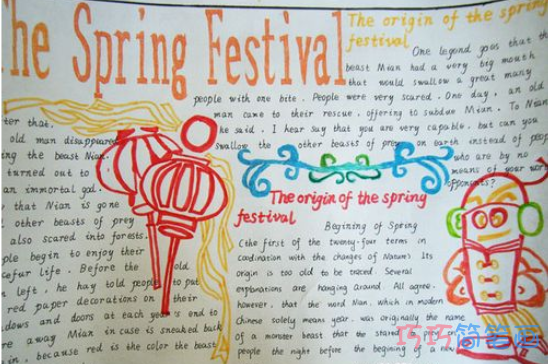 The Spring Festival
The origin of the spring
festival
One legend goes that the
beast Mian had a very big mouth
that would swallow a great many
people with one bite. People were very scared. One day, an old
man came to their rescue, offering to subdue Mian. To Nian
he said. I hear say that you are very capable, but can you
swallow the other beasts of prey on earth instead of people
who are by no
means of your worth
opponents?
ter that.
old man disappeared
ing the beast Nian.
turned out to
an immortal god.
that Nian is gone
other beasts of prey
also scared into forests.
ple begin to enjoy their
ceful life. Before the old
left, he hay told people to put
red paper decorations on their
indows and doors at each year's end to
re away Mian in case is sneaked back
in, because red is the color the beast
The origin of the spring
festival
Begining of Spring
(the first of the twenty-four terms in
coordination with the changes of Nature's Its
origin is too old to be traced. Several
explanations are hanging around. All agree,
however, that the word Nian, which in modern
Chinese solely means year, was originally the name
of a monster beast that the started to prey on
people the night before the beginning of a new
巧巧简笔画